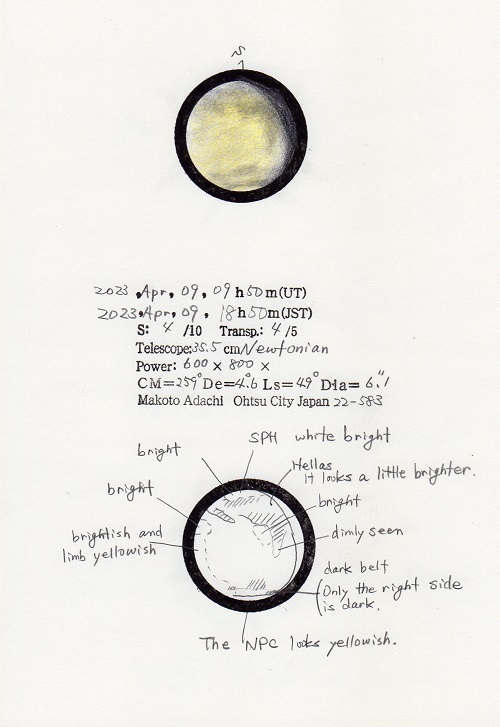 S
2023, Apr, 09, 09h50m(UT)
2023, Apr, 09, 18h50m(JST)
S: 4 /10 Transp.: 4 /5
Telescope:35.5 cm Newtonian
Power: 600 × 800 ×
CM=259° De=4.°6 Ls=49° Dia= 6."1
Makoto Adachi Ohtsu City Japan 22-583
bright
SPH white bright
Hellas
It looks a little brighter.
bright
bright
brightish and
limb yellowish
dimly seen
dark belt
(Only the right side
is dark.
The NPC looks yellowish.